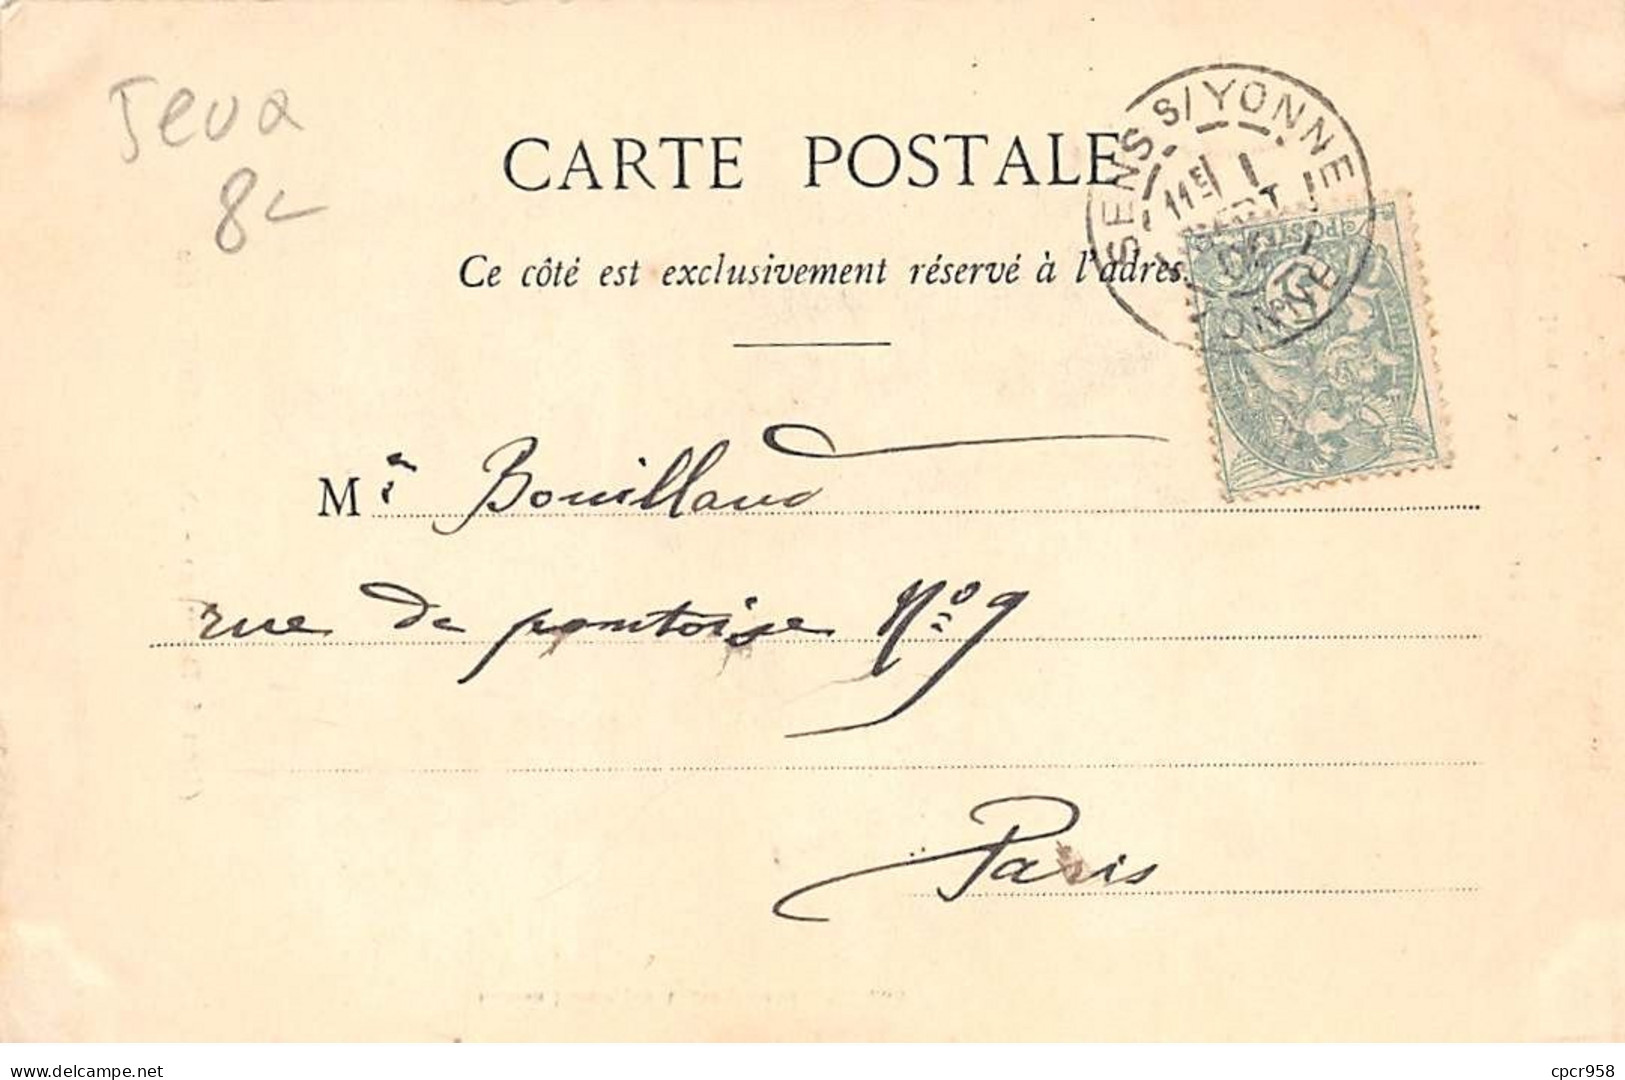 8
CARTE POSTALE
SENS S/YONNE
11E
YONNE
POSTES
Ce côté est exclusivement réservé à l'adres
Mr Bouillaud
rue de pontoise No 9
Paris
www.delcampe.net
cpcr958